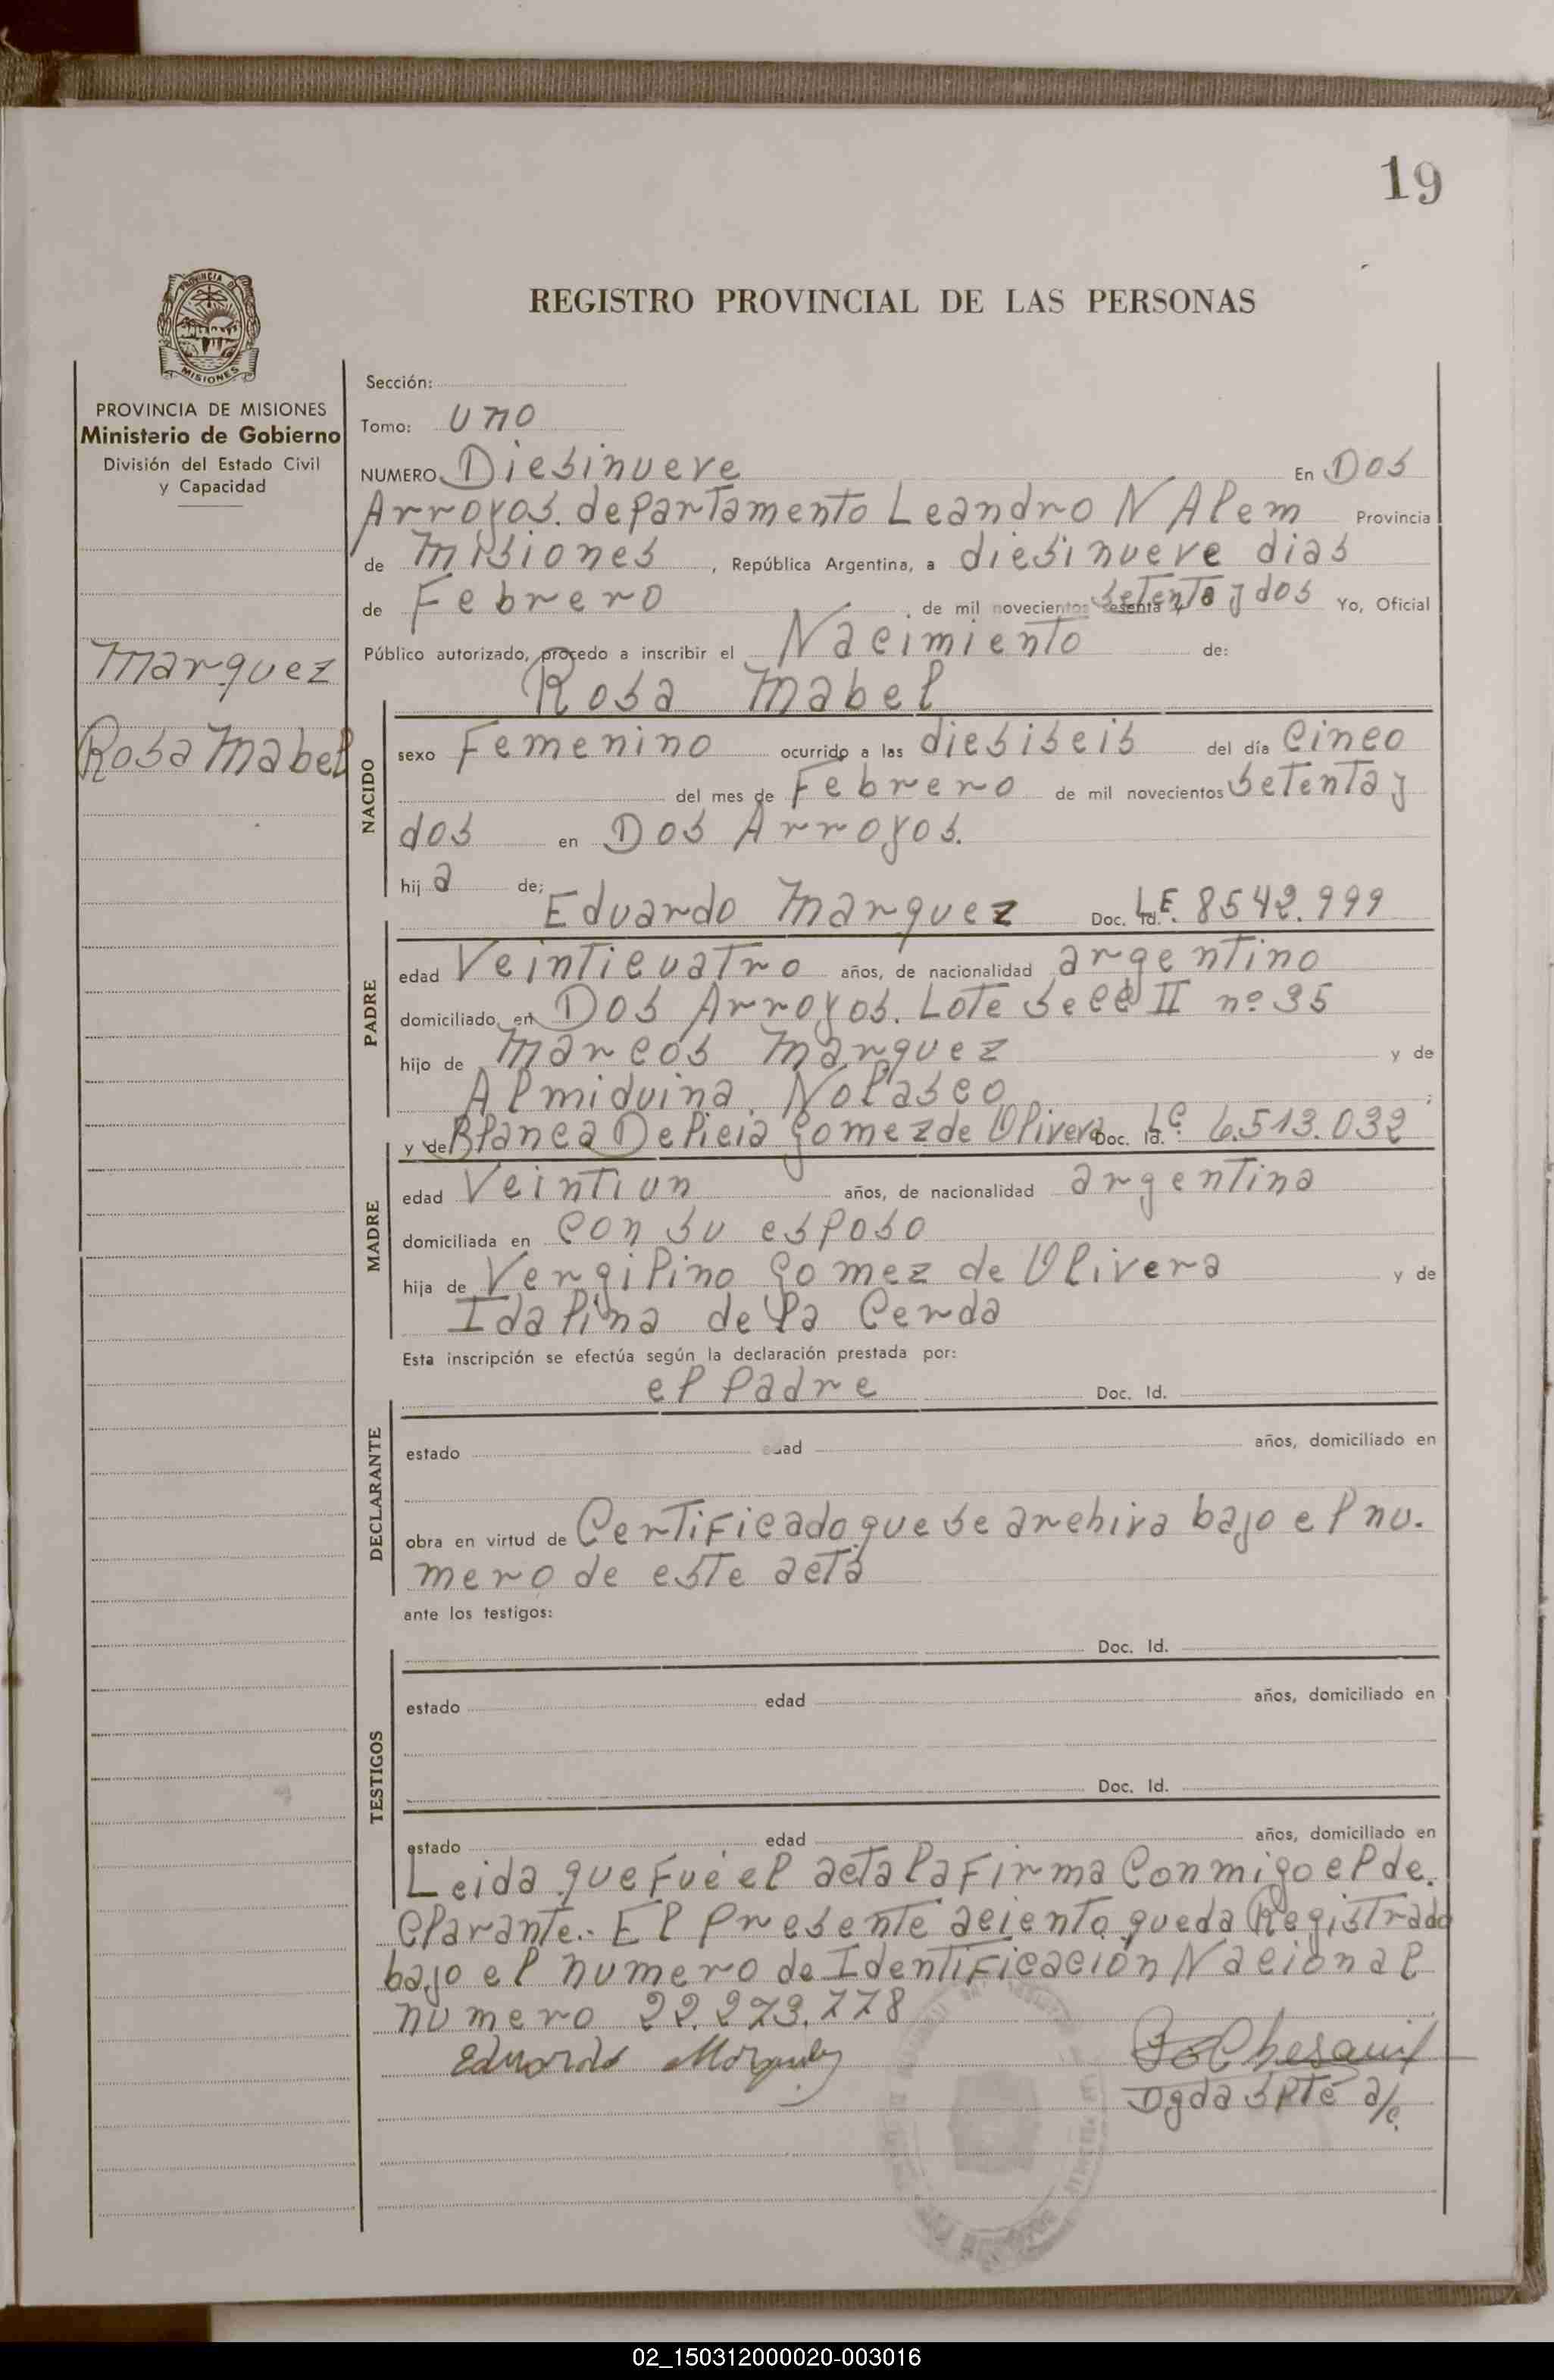 19
REGISTRO PROVINCIAL DE LAS PERSONAS
PROVINCIA DE MISIONES
PROVINCIA DE MISIONES
Ministerio de Gobierno
División del Estado Civil
y Capacidad
Marquez
Rosa Mabel
Sección:
Tomo: uno
NUMERO Diesinueve En Dos
Arroyos. departamento Leandro N Alem Provincia
de Misiones, República Argentina, a diesinueve dias
de Febrero, de mil novecientos sesenta y setenta y dos Yo, Oficial
Público autorizado, procedo a inscribir el Nacimiento de:
Rosa Mabel
NACIDO
sexo Femenino ocurrido a las diesiseis del día Cinco
del mes de Febrero de mil novecientos setenta y
dos en Dos Arroyos.
hij a de;
Eduardo Marquez Doc. Id. L.E. 8542.999
PADRE
edad Veinticuatro años, de nacionalidad argentino
domiciliado en Dos Arroyos. Lote Secc II nº 35
hijo de Marcos Marquez y de
Almiduina Nolasco;
y de Blanca Delicia Gomez de Olivera Doc. Id. L.C. 6.513.032
MADRE
edad Veintiun años, de nacionalidad argentina
domiciliada en con su esposo
hija de Vergilino Gomez de Olivera y de
Idalina de la Cerda
Esta inscripción se efectúa según la declaración prestada por:
el Padre Doc. Id.
DECLARANTE
estado edad años, domiciliado en
obra en virtud de Certificado que se archiva bajo el nu.
mero de este acta
ante los testigos:
Doc. Id.
TESTIGOS
estado edad años, domiciliado en
Doc. Id.
estado edad años, domiciliado en
Leida que fué el acta la firma Conmigo el de.
clarante.. El Presente aciento queda Registrado
bajo el numero de Identificación Nacional
numero 22.273.778
Eduardo Marquez
Dgda Splte a/c
02_150312000020-003016